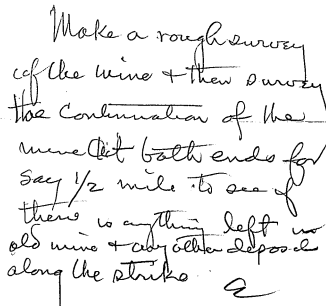 Make a rough survey
of the mine + then survey
the continuation of the
mine at both ends for
say 1/2 mile to see if
there is anything left in
old mine + any other deposit
along the strike.
E